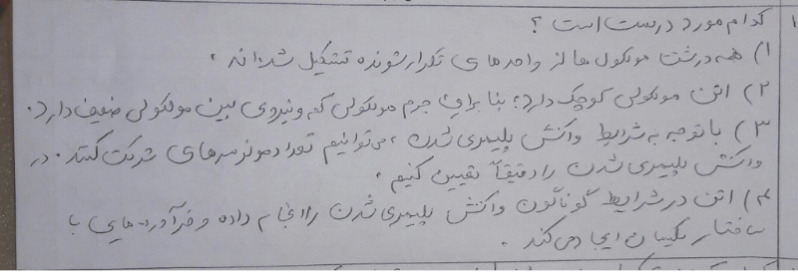 ۱ کدام مورد درست است؟
۱) همه درشت مولکول ها از واحدهای تکرارشونده تشکیل شده اند.
۲) اتن مولکولی کوچک دارد؛ بنابراین جرم مولکولی کم و نیروی بین مولکولی ضعیف دارد.
۳) با توجه به شرایط واکنش پلیمری شدن، می توانیم تعداد مونومرهای شرکت کننده در
واکنش پلیمری شدن را دقیقاً تعیین کنیم.
۴) اتن در شرایط گوناگون واکنش پلیمری شدن را انجام داده و فرآورده هایی با
ساختار یکسان ایجاد می کند.